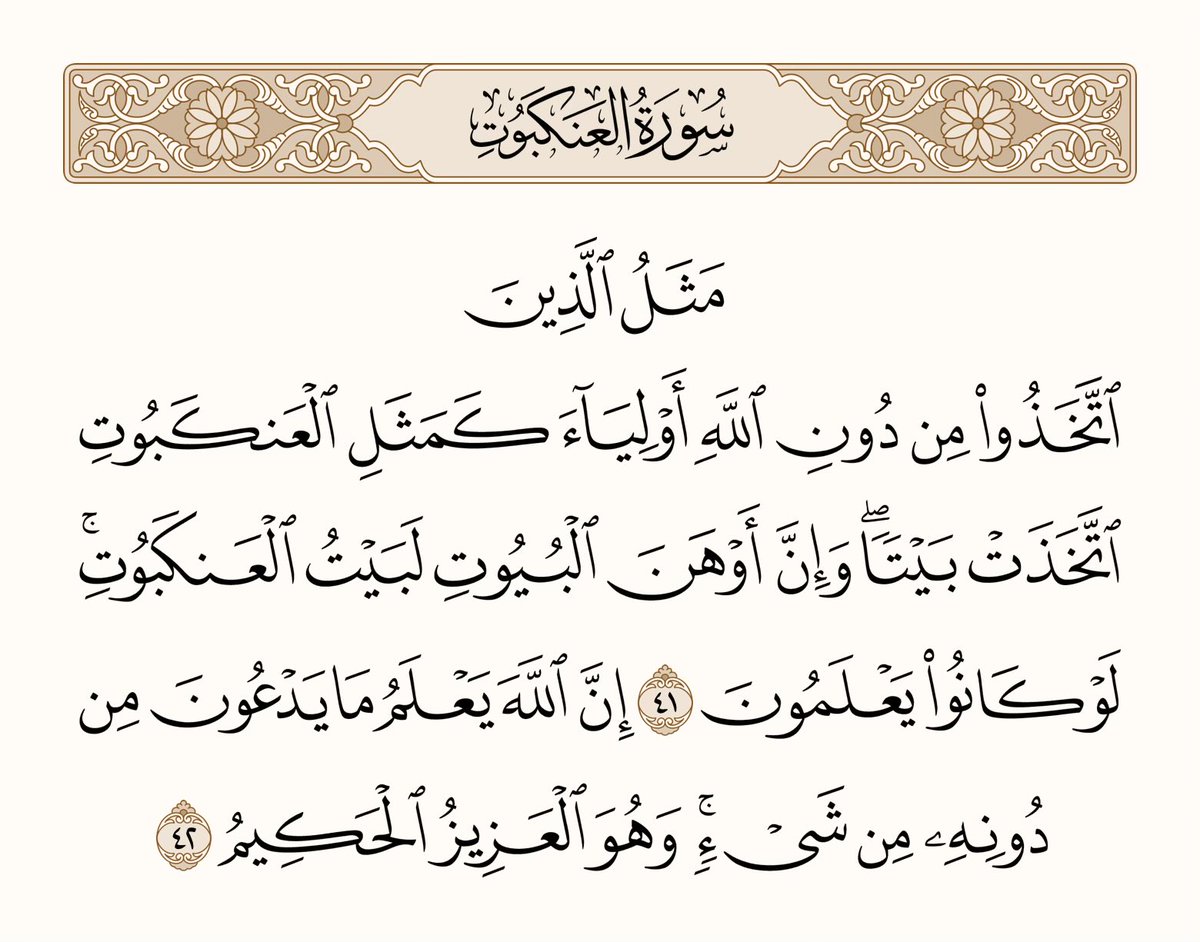 سُورَةُ العَنكَبُوتِ
مَثَلُ ٱلَّذِينَ
ٱتَّخَذُوا۟ مِن دُونِ ٱللَّهِ أَوْلِيَآءَ كَمَثَلِ ٱلْعَنكَبُوتِ
ٱتَّخَذَتْ بَيْتًاۖ وَإِنَّ أَوْهَنَ ٱلْبُيُوتِ لَبَيْتُ ٱلْعَنكَبُوتِۚ
لَوْ كَانُوا۟ يَعْلَمُونَ ٤١ إِنَّ ٱللَّهَ يَعْلَمُ مَا يَدْعُونَ مِن
دُونِهِۦ مِن شَىْءٍۚ وَهُوَ ٱلْعَزِيزُ ٱلْحَكِيمُ ٤٢